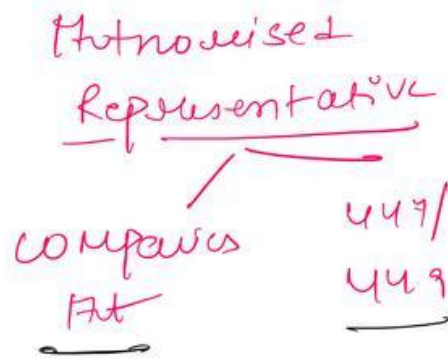 Authorised
Representative
Companies
Act
447/
449